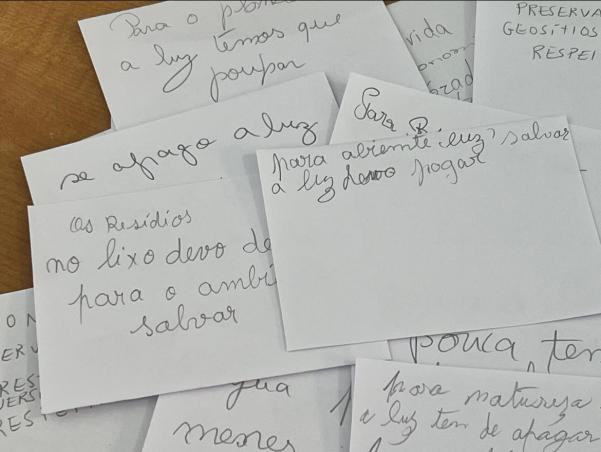 Para o
a luz temos que
poupar
vida
PRESERVA
GEOSÍTIOS
RESPEI
se apago a luz
Para
para abiente luz salvar
a luz devo pogar
Os Resídios
no lixo devo de
para o ambi
salvar
pouca, ten
gua
menes
para natureza
a luz tem de apagar